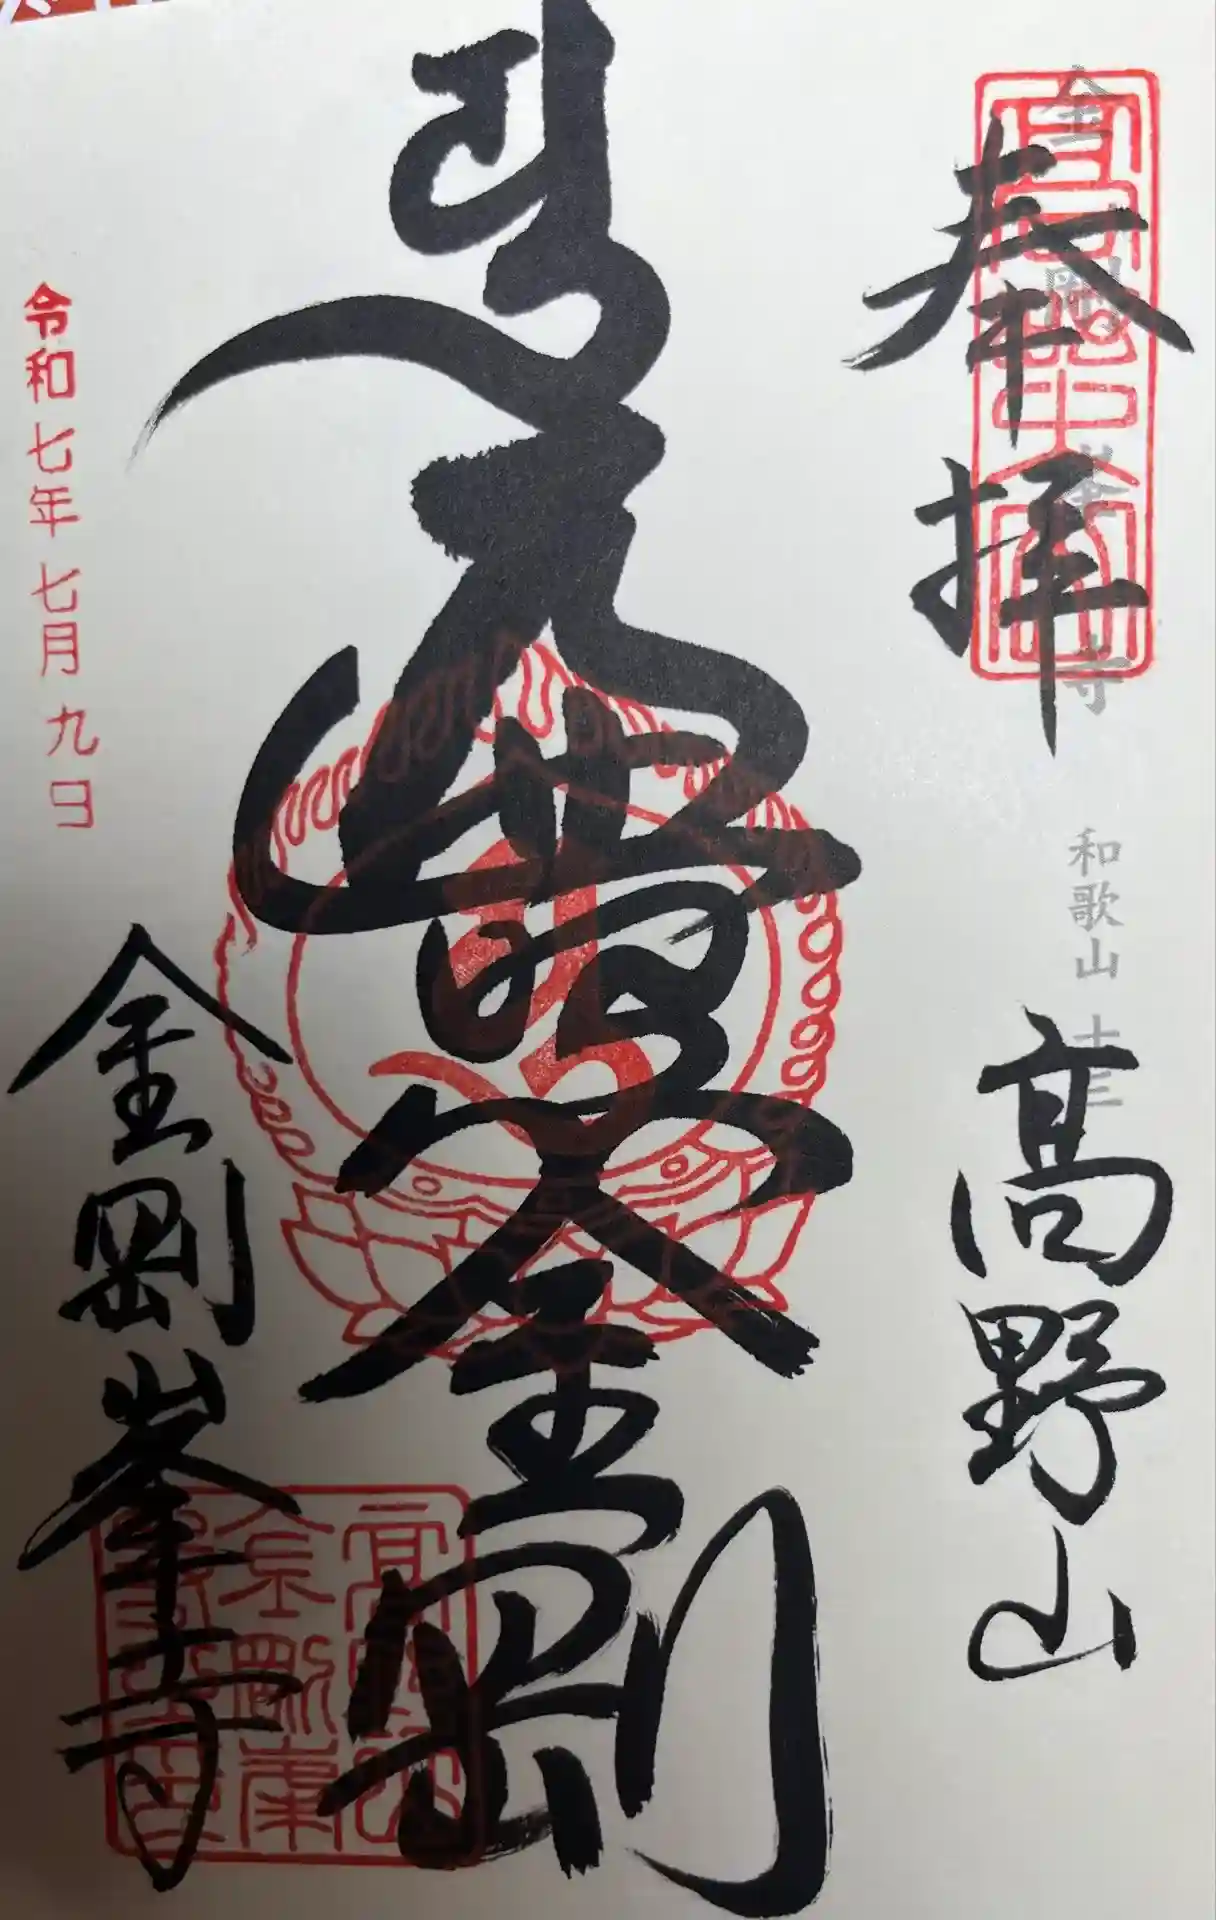 奉拝
高野山
金剛峯寺
和歌山 十三
遍照金剛
金剛峯寺
令和七年七月九日